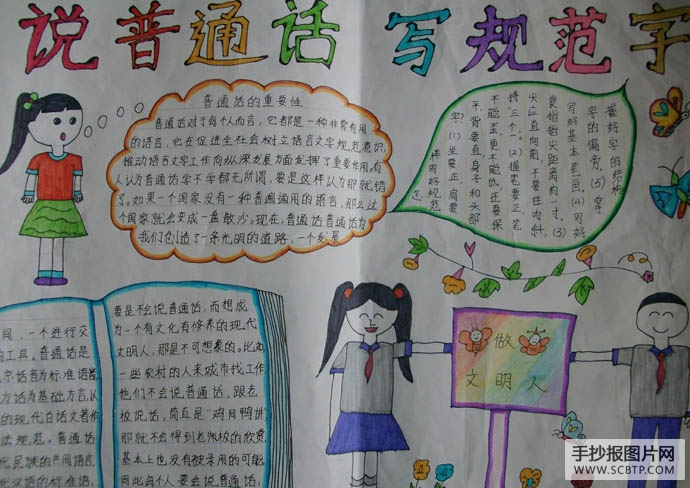 说普通话 写规范字
普通话的重要性
普通话对于每个人而言，它都是一种非常有用
的语言，它在促进全社会树立语言文字规范意识，
推动语言文字工作向纵深发展方面发挥了重要作用。有
人认为普通话学不学都无所谓，要是这样认为那就错
了。如果一个国家没有一种普遍通用的语言，那么这
个国家就会变成一盘散沙。现在，普通话普通话为
我们创造了一条光明的道路，一个发展
怎
样写好规范
字？(1)坐要正，肩要
平，背要直，身子和头部
不能歪，更不能低，还要保
持“三个一”。(2)握笔要正，笔
尖应直向前，不要往内斜，
食指指尖距离约一寸。(3)
写好基本笔画。(4)写好
字的偏旁。(5)掌
握好字的结构
间，一个进行交
的工具。普通话是
京语音为标准语音
方话为基础方言，以
的现代白话文著作
法规范，普通话
代民族的共同语言
代汉语的标准语，
要是不会说普通话，而想成
为一个有文化有修养的现代
文明人，那是不可想象的。比如
一些农村的人来城市找工作
他们不会说普通话，跟老
板说话，简直是“鸡同鸭讲”
那就不会得到老板的欣赏，
基本上也没有被录用的可能
因此每个人要会说普通话，
做
文明人
手抄报图片网
WWW.SCBTP.COM